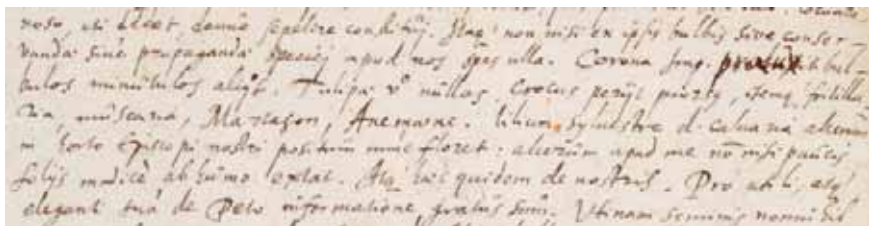 noso, uti decet, denuo sepelire constitui. Itaq' non nisi ex ipsis bulbis sive conser-
vanda sive propaganda speciei apud nos spes ulla. Corona Imp. bul-
bulos minutulos aliq't. Tulipa v° nullos. Crocus perijt, itemq, fritilla-
ria, muscaria, Martagon, Anemone. Lilium sylvestre d. calvaria alterum
in horto Episcopi nostri positum nunc floret: alterum apud me nō nisi paucis
folijs modicè ab humo extat. Atq haec quidem de nostris. Pro utili, atq'
eleganti tua de Peto informatione, gratus sum. Utinam seminis nonnihil